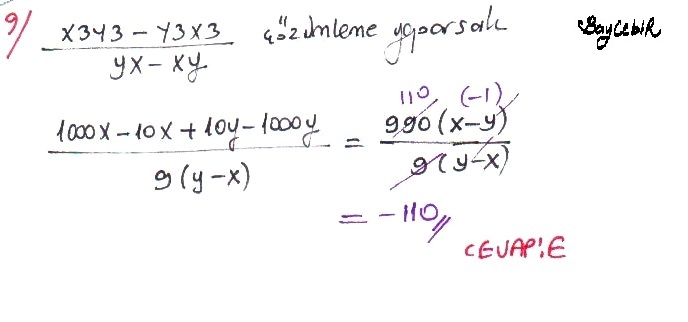 9/ x3y3 - y3x3 / yx - xy çözümleme yaparsak BayCebir
1000x - 10x + 10y - 1000y / 9(y-x) = 990(x-y) / 9(y-x) 110 (-1)
= -110//
CEVAP:E